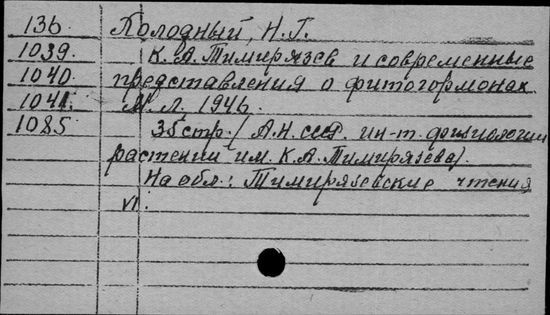 136. Холодный, Н.Г.
1039. К.А. Тимирязев и современные
1040. представления о фитогормонах.
1041. М.Л. 1946.
1085 35 стр. (А.Н. СССР. ин-т. физиологии
растении им. К.А. Тимирязева).
На обл.: Тимирязевские чтения
VI.